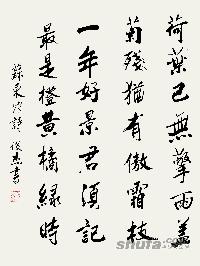 荷葉已無擎雨蓋
菊殘猶有傲霜枝
一年好景君須記
最是橙黃橘綠時
蘇東坡詩 俊杰書